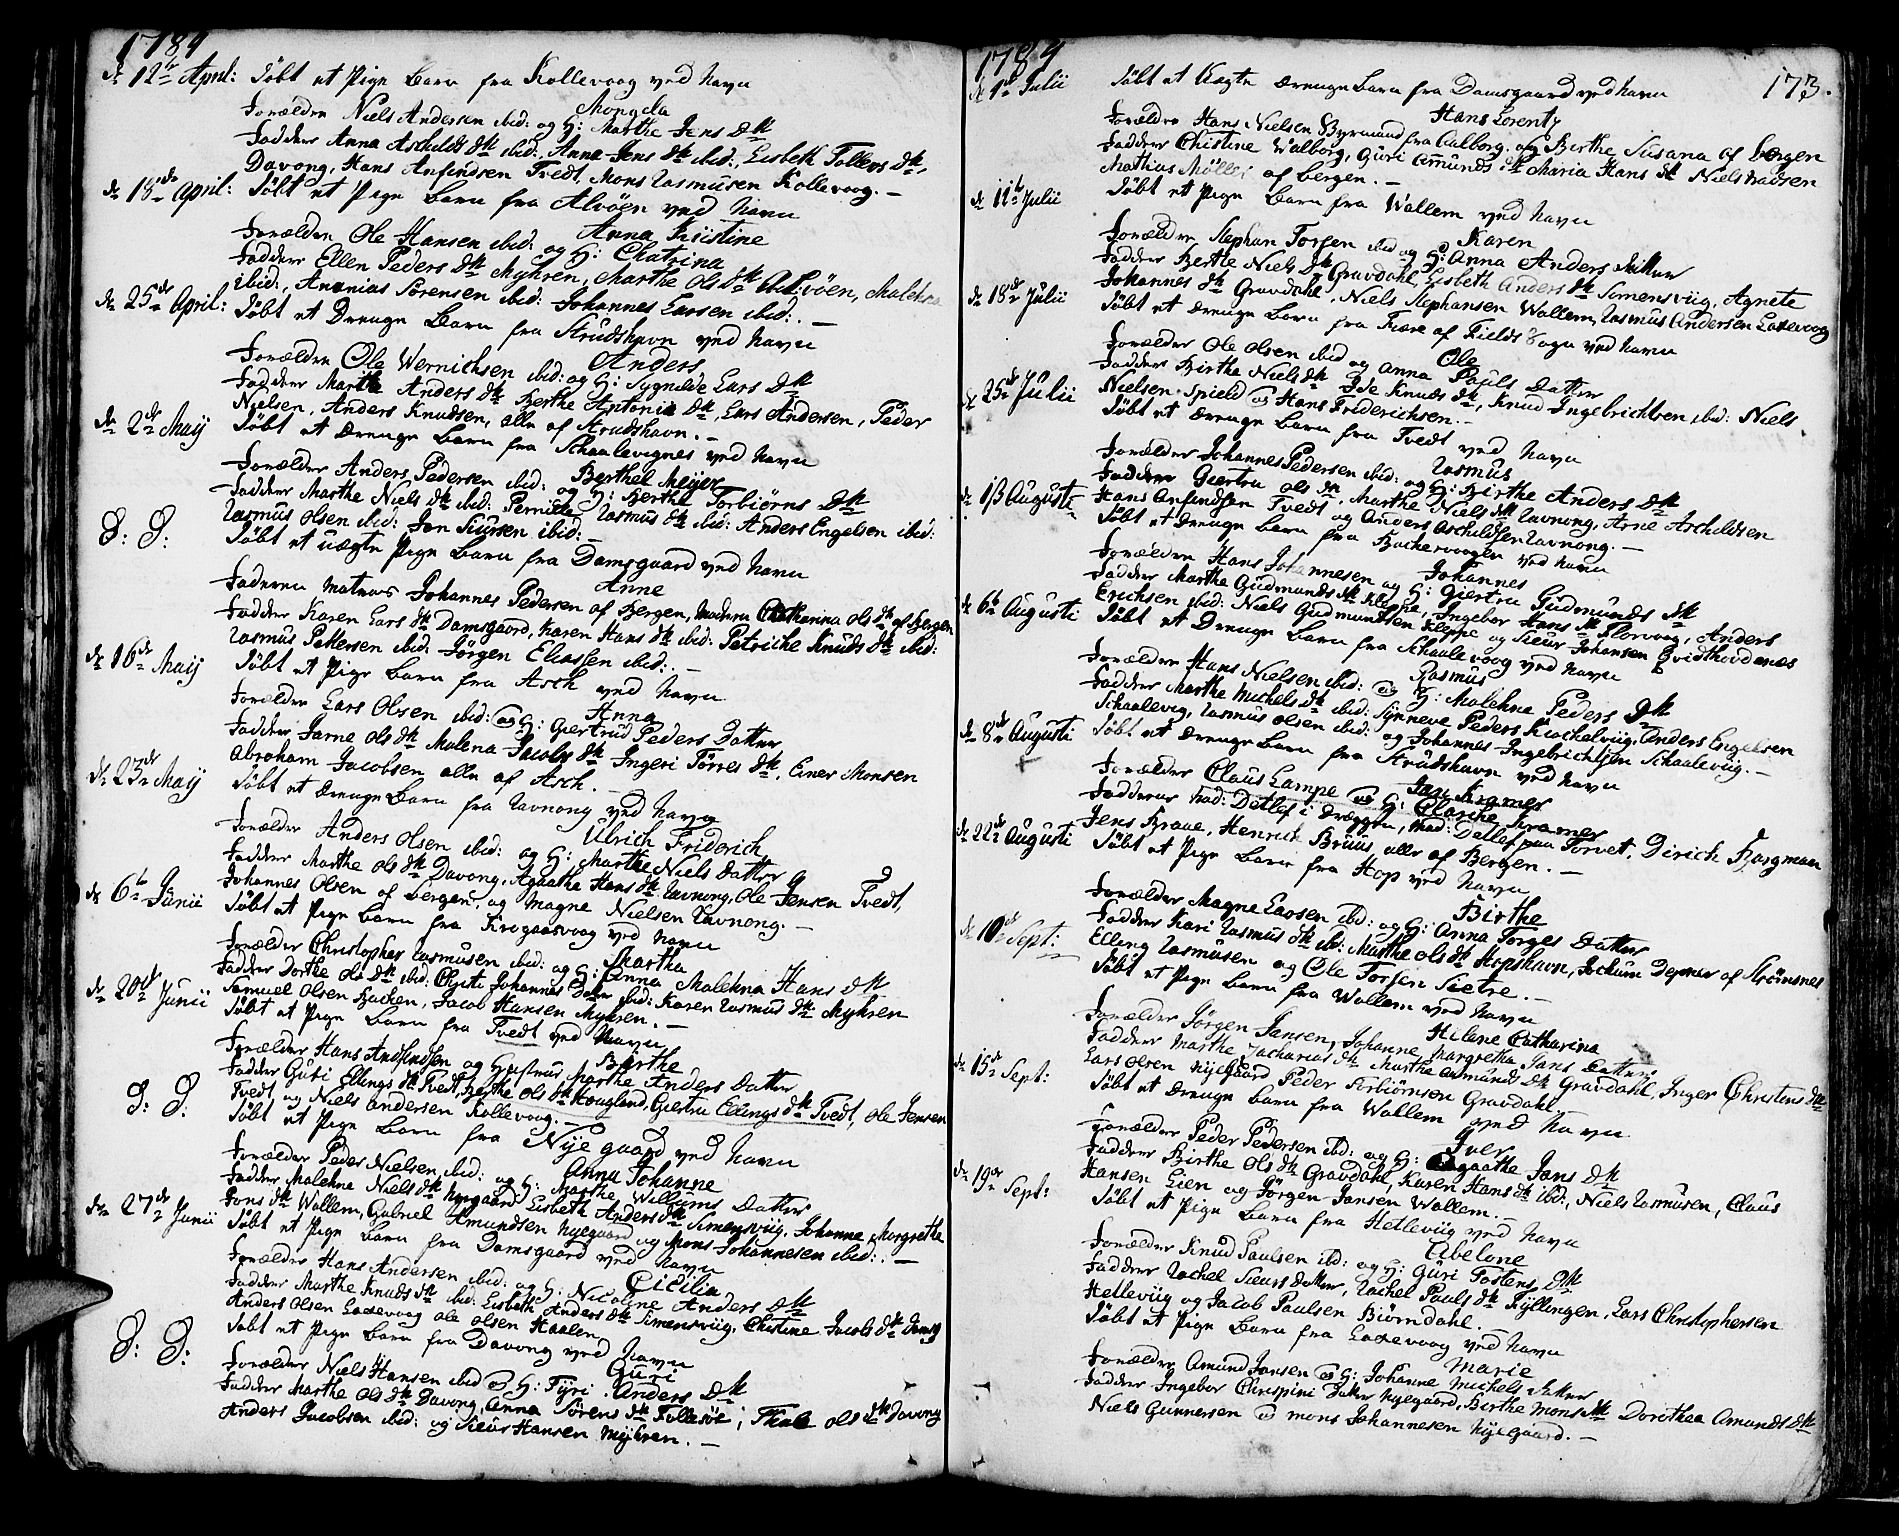 1784
d: 12te April: Døbt et Pige Barn fra Kollevaag ved Navn
Mongela
Forældre Niels Andersen ibid: og H: Marthe Jens dtr
Fadder Anna Aschilds dtr ibid: Anna Jens dtr ibid: Lisbeth Tollevs dtr,
Davong, Hans Anfindsen Tvedt, Mons Rasmusen Kollevaag. —
d: 18de April: Døbt et Pige Barn fra Alvöen ved Navn
Anna Kristine
Forældre Ole Hansen ibid: og H: Chatrina
Fadder Ellen Peders dtr Myhren, Marthe Ols dtr Alvöen, Malehna
ibid:, Ananias Sörensen ibid: Johannes Larsen ibid: . —
d: 25de April: Døbt et Drenge Barn fra Strudshavn ved Navn
Anders
Forældre Ole Wernichsen ibid: og H: Sygnilde Lars dtr
Fadder Marthe Anders dtr Berthe Antonis dtr, Lars Andersen, Peder
Nielsen, Anders Knudsen, alle af Strudshavn. —
d: 2de Maij Døbt et Drenge Barn fra Schaalevignes ved Navn
Berthel Meijer
Forældre Anders Pedersen ibid: og H: Berthe Torbiörns dtr
Fadder Marthe Niels dtr ibid: Pernille Rasmus dtr ibid: Anders Engelsen ibid:
Rasmus Olsen ibid: Jon Siursen ibid: —
D: D: Døbt et uægte Pige Barn fra Damsgaard ved Navn
Anne
Faderen Matros Johannes Pedersen af Bergen, Moderen Chathanna Ols dtr af Bergen
Fadder Karen Lars dtr Damsgaard, Karen Hans dtr ibid: Petriche Knuds dtr ibid:
Rasmus Pettersen ibid: Jörgen Eliassen ibid: . —
d: 16de Maij Døbt et Pige Barn fra Asch ved Navn
Anna
Forældre Lars Olsen ibid: og H: Giertrud Peders Datter
Fadder Jarne Ols dtr Malena Jacobs dtr Ingeri Törres dtr, Einer Monsen
Abraham Jacobsen, alle af Asch. —
d: 23de Maij Døbt et Drenge Barn fra Ravnong ved Navn
Ulrich Friderich
Forældre Anders Olsen ibid: og H: Marthe Niels Datter
Fadder Marthe Ols dtr Davong, Agaathe Hans dtr Ravnong, Ole Jensen Tvedt,
Johannes Olsen af Bergen, og Magne Nielsen Ravnong. —
d: 6te Junii Døbt et Pige Barn fra Krogaasvaag ved Navn
Martha
Forældre Christopher Rasmusen ibid: og H: Anna Malehna Hans dtr
Fadder Dorthe Ols dtr ibid: Christi Johannes Datter ibid: Karen Rasmus dtr Myhren
Samuel Olsen Backen, Jacob Hansen Myhren. —
d: 20de Junii Døbt et Pige Barn fra Tvedt ved Navn
Birthe
Forældre Hans Andfindsen og Hustrue Marthe Anders Datter
Fadder Guri Ellings dtr Tvedt, Berthe Ols dtr Hougland, Giertru Ellings dtr Tvedt, Ole Jensen
Tvedt, og Niels Andersen Kollevaag. —
D: D: Døbt et Pige Barn fra Nye gaard ved Navn
Anna Johanne
Forældre Peder Nielsen ibid: og H: Marthe Willums Datter
Fadder Malehne Niels dtr Nyegaard Lisbeth Anders dtr Simensviig, Johanne Margrethe
Jons dtr Wallem, Gabriel Amundsen Nyegaard og Mons Johannesen ibid: . —
d: 27de Junii Døbt et Pige Barn fra Damsgaard ved Navn
Cicilia
Forældre Hans Andersen ibid: og H: Nicoline Anders dtr
Fadder Marthe Knuds dtr ibid: Lisbeth Anders dtr Simensviig, Chistine Jacobs dtr
Anders Olsen Laxevaag Ole Olsen Haalen
D: D: Døbt et Pige Barn fra Davong ved Navn
Guri
Forældre Niels Hansen ibid og H: Tyri Anders dtr
Fadder Marthe Ols dtr Davong, Anna Sörens dtr Follesöe, Thale Ols dtr Davong
Anders Jacobsen ibid: og Sieur Hansen Myhren. —
1784 173.
d: 4de Julii Døbt et Ægte Drenge Barn fra Damsgaard ved Navn
Hans Lorentz
Forældre Hans Nielsen Byrmand fra Aalborg, og Birthe Susana af Bergen
Fadder Christine Walborg, Guri Amunds dtr Maria Hans dtr Niels Madsen
Mathias Möller af Bergen. —
d: 11te Julii Døbt et Pige Barn fra Wallem ved Navn
Karen
Forældre Stephan Torsen ibid og H: Anna Anders Datter
Fadder Berthe Niels dtr Gravdahl, Lisbeth Anders dtr Simensviig, Agnete
Johannes dtr Gravdahl, Niels Stephansen Wallem, Rasmus Andersen Laxevaag
d: 18de Julii Døbt et Drenge Barn fra Kiære af Fields Sogn ved Navn
Ole
Forældre Ole Olsen ibid og Anna Pouls Datter
Fadder Birthe Niels dtr Ide Knuds dtr, Knud Ingebrichtsen ibid: Niels
Nielsen Spield og Hans Friderichsen. —
d: 25de Julii Døbt et Drenge Barn fra Tvedt ved Navn
Rasmus
Forældre Johannes Pedersen ibid: og H: Birthe Anders dtr
Fadder Giertru Ols dtr, Marthe Niels dtr Ravnong, Arne Aschildsen
Hans Anfindsen Tvedt og Anders Aschildsen Ravnong. —
d: 1ste Augusti Døbt et Drenge Barn fra Backervaagen ved Navn
Johannes
Forældre Hans Johannesen og H: Giertru Gudmunds dtr
Fadder Marthe Gudmunds dtr Kleppe, Ingebor Hans dtr Florvaag, Anders
Erichsen ibid: Niels Gudmundsen Kleppe og Sieur Johansen Qvidthovdenæs
d: 6te Augusti Døbt et Drenge Barn fra Schaalevaag ved Navn
Rasmus
Forældre Hans Nielsen ibid: og H: Malehne Peders dtr
Fadder Marthe Michels dtr ibid: Synneve Peders Kuchelviig, Anders Engelsen
Schaalevig, Rasmus Olsen ibid: og Johannes Ingebrichtsen Schaaleviig. —
d: 8de Augusti Døbt et Drenge Barn fra Strudshavn ved Navn
Jan Kramer
Forældre Claus Lampe og H: Clariche Kramer
Fadderne Mad: Detlef i Dræggen, Mad: Detlef paa Torvet, Dirich Bargman
Jens Brave, Henrich Bruus alle af Bergen. —
d: 22de Augusti Døbt et Pige Barn fra Hop ved Navn
Birthe
Forældre Magne Larsen ibid: og H: Anna Torges Datter
Fadder Kari Rasmus dtr ibid: Marthe Ols dtr Hopshavn, Jochum Depner af Strömsnes
Elling Rasmusen og Ole Torsen Sætre. —
d: 10de Sept: Døbt et Pige Barn fra Wallem ved Navn
Helene Catharina
Forældre Jörgen Jansen, Johanne Margretha Jans Datter
Fadder Marthe Zacharias dtr Marthe Asmunds dtr Gravdahl, Inger Christens dtr
Lars Olsen Nyegaard Peder Torbiörnsen Gravdahl
d: 15de Sept: Døbt et Drenge Barn fra Wallem ved Navn
Iver
Forældre Peder Pedersen ibd: og H: Agaathe Jans dtr
Fadder Birthe Ols dtr Gravdahl, Karen Hans dtr ibid:, Niels Rasmusen, Claus
Hansen Lien og Jörgen Jansen Wallem. —
d: 19de Sept: Døbt et Pige Barn fra Hetleviig ved Navn
Abelone
Forældre Knud Paulsen ibd: og H: Guri Tostens dtr
Fadder Rachel Sieurs Datter, Rachel Pauls dtr Kyllingen, Lars Christophersen
Hetleviig og Jacob Paulsen Biörndahl. —
Døbt et Pige Barn fra Laxevaag ved Navn
Marie
Forældre Amund Jansen og H: Johanne Michels Datter
Fadder Ingebor Chrispini Datter Nyegaard, Birthe Mons dtr Dorothea Amunds dtr
Niels Gunnersen og Mons Johannesen Nyegaard. —